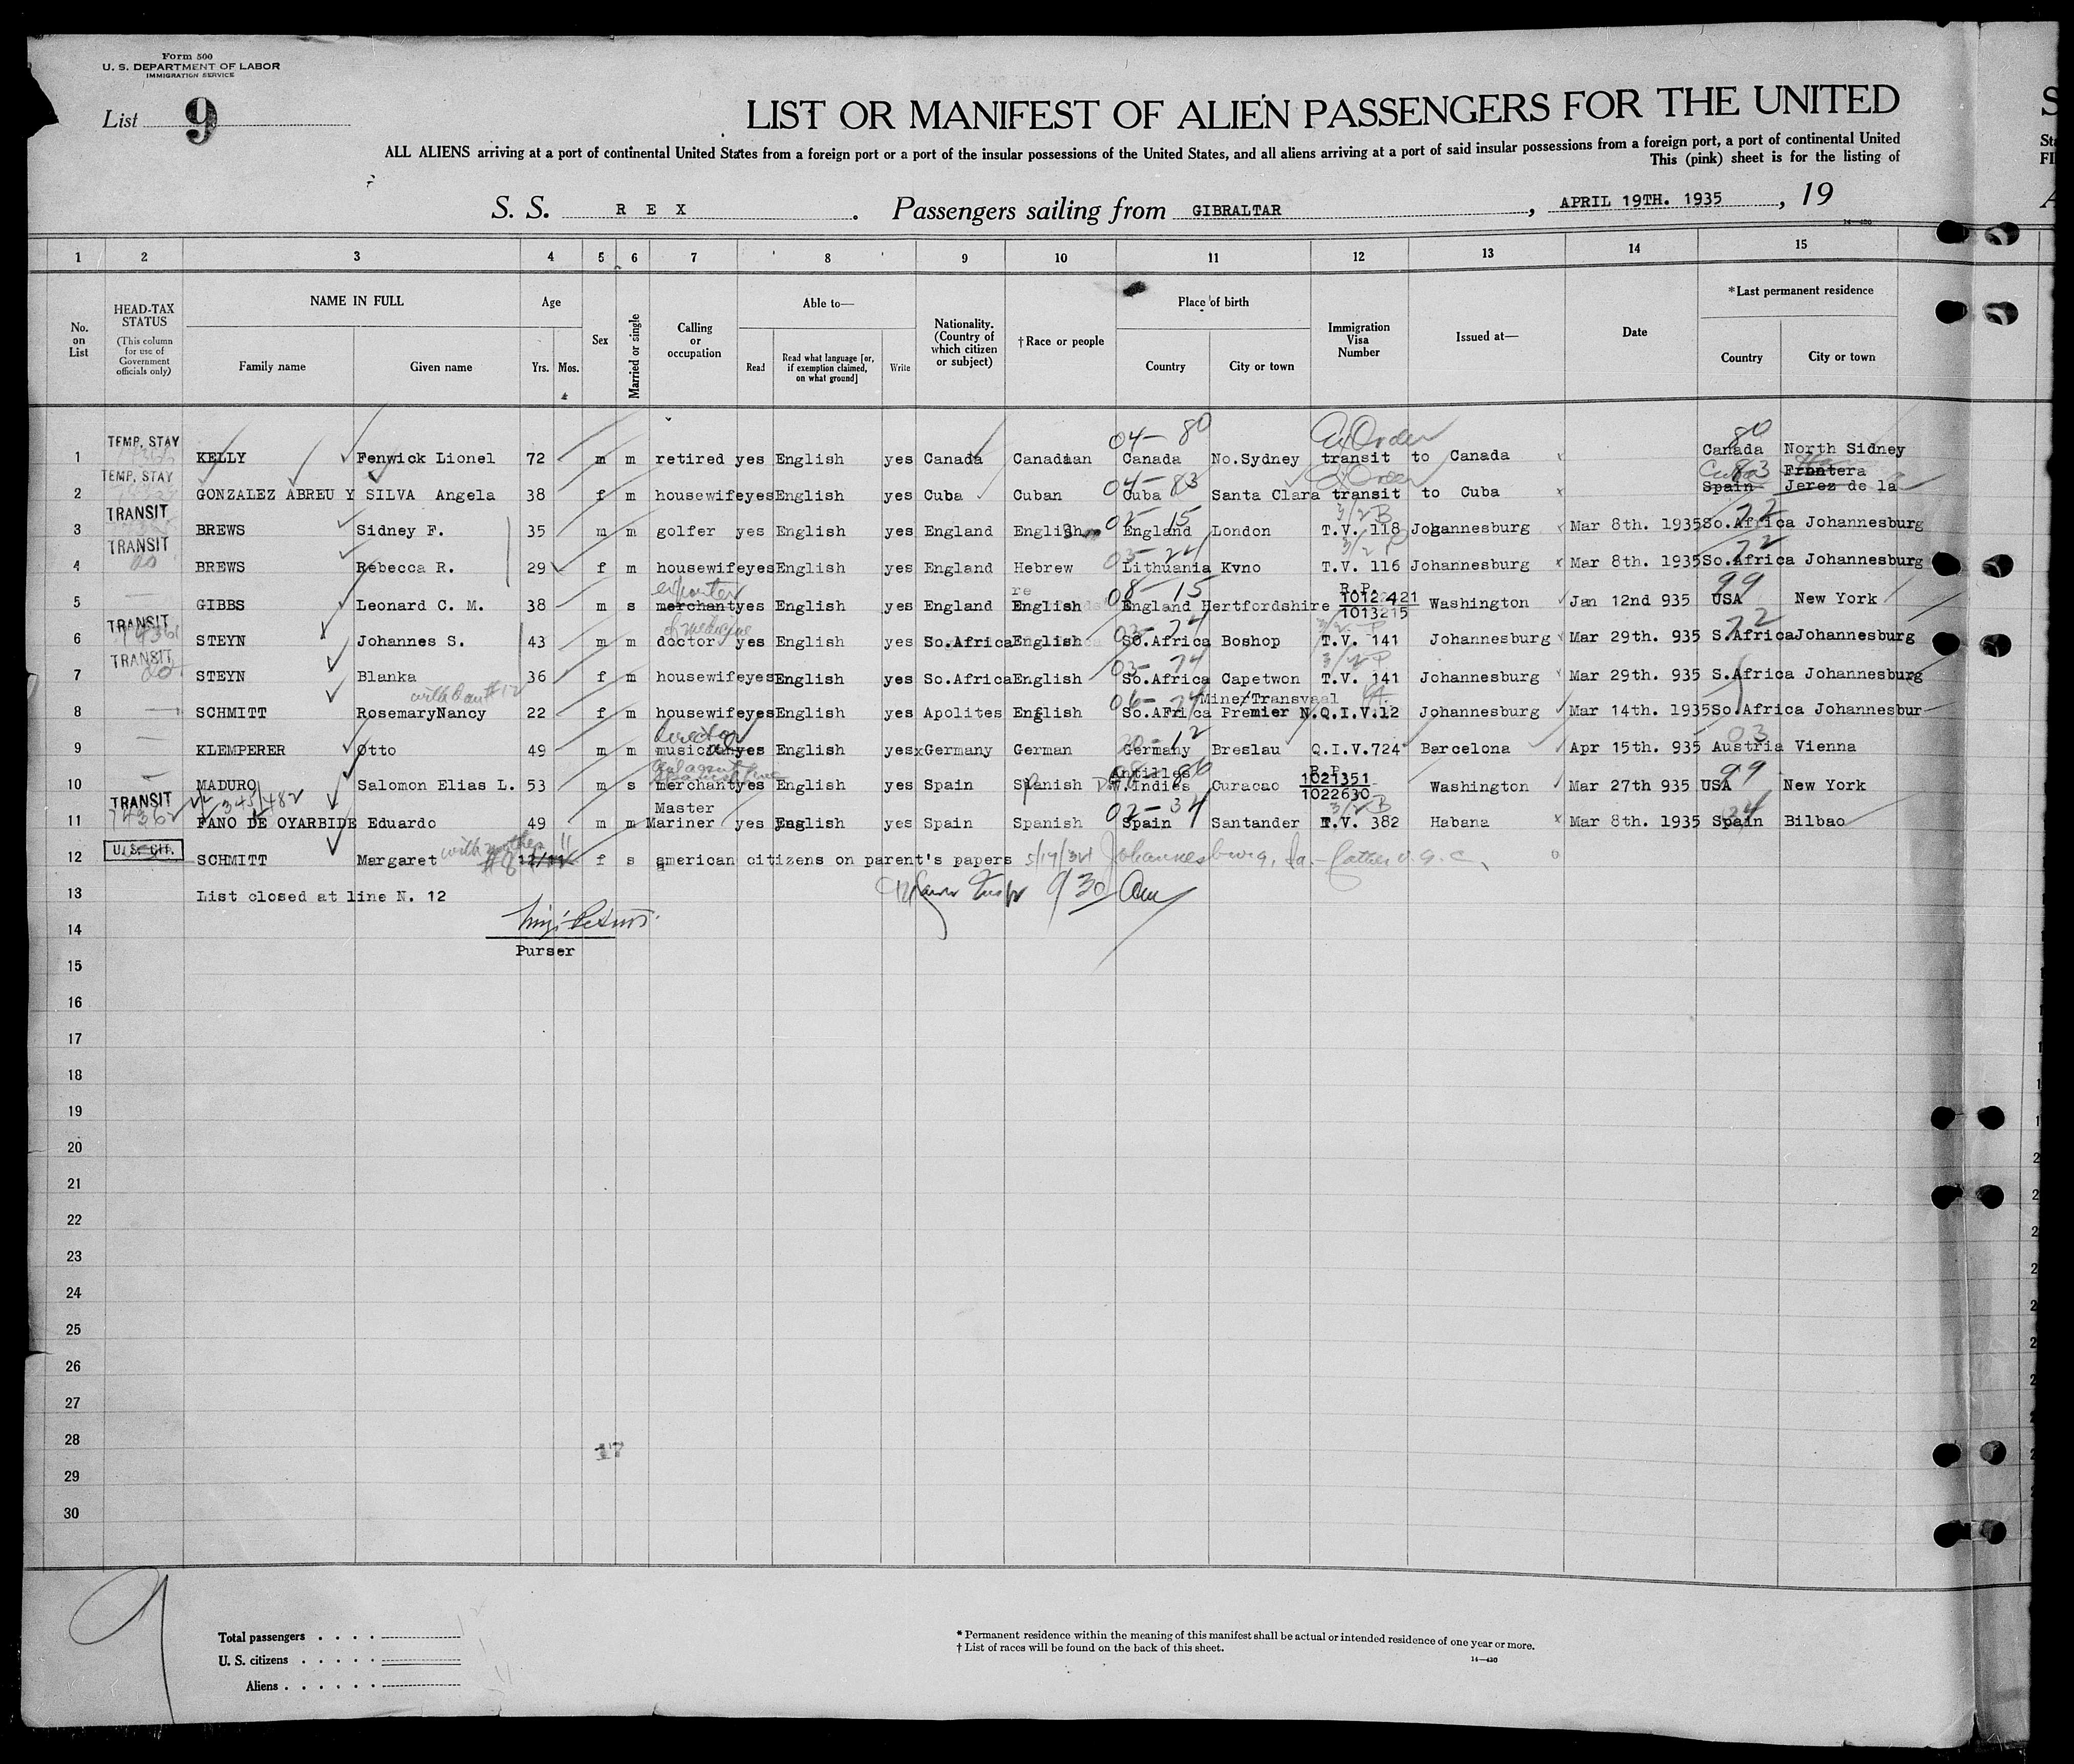 Form 500
U. S. DEPARTMENT OF LABOR
IMMIGRATION SERVICE
List 9
LIST OR MANIFEST OF ALIEN PASSENGERS FOR THE UNITED
ALL ALIENS arriving at a port of continental United States from a foreign port or a port of the insular possessions of the United States, and all aliens arriving at a port of said insular possessions from a foreign port, a port of continental United
This (pink) sheet is for the listing of
S. S. R E X . Passengers sailing from GIBRALTAR , APRIL 19TH. 1935 , 19
14—430
1 2 3 4 5 6 7 8 9 10 11 12 13 14 15
No. on List
HEAD-TAX STATUS (This column for use of Government officials only)
NAME IN FULL
Family name Given name
Age
Yrs. Mos.
Sex
Married or single
Calling or occupation
Able to—
Read Read what language [or, if exemption claimed, on what ground] Write
Nationality. (Country of which citizen or subject)
†Race or people
Place of birth
Country City or town
Immigration Visa Number
Issued at—
Date
*Last permanent residence
Country City or town
04— 80 80
1 TEMP. STAY KELLY Fenwick Lionel 72 m m retired yes English yes Canada Canadian Canada No.Sydney transit to Canada Canada North Sidney
04— 83 Cuba 83 Frontera
2 TEMP. STAY GONZALEZ ABREU Y SILVA Angela 38 f m housewife yes English yes Cuba Cuban Cuba Santa Clara transit to Cuba Spain Jerez de la
02— 15 3/2 B 72
3 TRANSIT BREWS Sidney F. 35 m m golfer yes English yes England English England London T.V. 118 Johannesburg Mar 8th. 1935 So.Africa Johannesburg
03— 24 72
4 TRANSIT BREWS Rebecca R. 29 f m housewife yes English yes England Hebrew Lithuania Kvno T.V. 116 Johannesburg Mar 8th. 1935 So.Africa Johannesburg
exporter 08— 15 R.P. 99
5 GIBBS Leonard C. M. 38 m s merchant yes English yes England English England Hertfordshire 1012421 1013215 Washington Jan 12nd 935 USA New York
of medicine 03— 74 72
6 TRANSIT STEYN Johannes S. 43 m m doctor yes English yes So.Africa English SO.Africa Boshop T.V. 141 Johannesburg Mar 29th. 935 S.Africa Johannesburg
03— 74
7 TRANSIT STEYN Blanka 36 f m housewife yes English yes So.Africa English So.Africa Capetwon T.V. 141 Johannesburg Mar 29th. 935 S.Africa Johannesburg
06— 74 Mine/Transvaal
8 SCHMITT RosemaryNancy 22 f m housewife yes English yes Apolites English So.AFrica Premier N.Q.I.V.12 Johannesburg Mar 14th. 1935 So.Africa Johannesbur
director 12 03
9 KLEMPERER Otto 49 m m musician yes English yes x Germany German Germany Breslau Q.I.V.724 Barcelona Apr 15th. 935 Austria Vienna
Antilles 86 R.P. 99
10 MADURO Salomon Elias L. 53 m s merchant yes English yes Spain Spanish D.W.Indies Curacao 1021351 1022630 Washington Mar 27th 935 USA New York
345/482 Master 02— 34 3/2 B 34
11 TRANSIT FANO DE OYARBIDE Eduardo 49 m m Mariner yes English yes Spain Spanish Spain Santander T.V. 382 Habana Mar 8th. 1935 Spain Bilbao
with mother #8 11
12 U. S. CIT. SCHMITT Margaret f s american citizens on parent's papers 5/19/34 Johannesburg, father
13 List closed at line N. 12
9 30 am
14
Purser
15
16
17
18
19
20
21
22
23
24
25
26
27
28
17
29
30
9
Total passengers
U. S. citizens
Aliens
* Permanent residence within the meaning of this manifest shall be actual or intended residence of one year or more.
† List of races will be found on the back of this sheet.
14—430